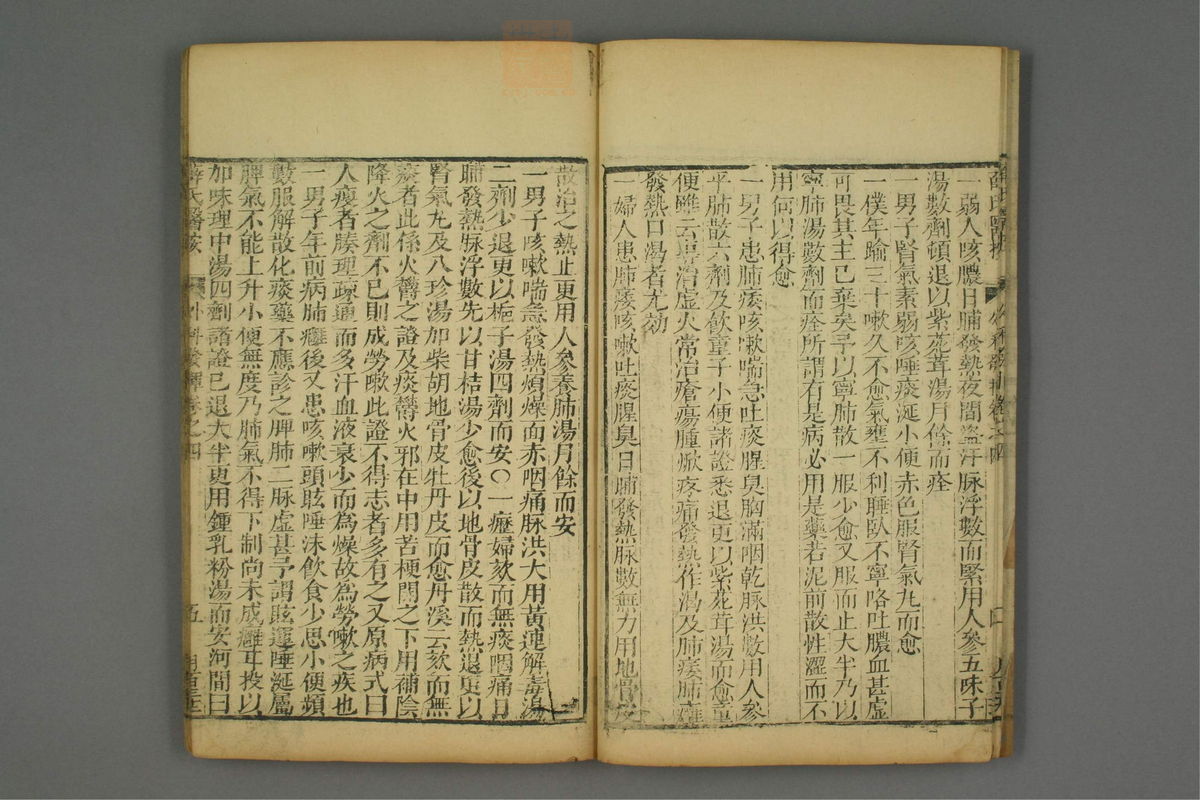 一弱人咳膿日晡發熱夜間盜汗脉浮數而緊用人參五味子
湯數劑頓退以紫菀茸湯月餘而痊
一男子腎氣素弱咳唾痰涎小便赤色服腎氣丸而愈
一僕年踰三十嗽久不愈氣壅不利睡臥不寧咯吐膿血甚虛
可畏其主已棄矣予以寧肺散一服少愈又服而止大半乃以
寧肺湯數劑而痊所謂有是病必用是藥若泥前散性澀而不
用何以得愈
一男子患肺痿咳嗽喘急吐痰腥臭胸滿咽乾脉洪數用人參
平肺散六劑及飲童子小便諸證悉退更以紫菀茸湯而愈童
便雖云專治虛火常治瘡瘍腫焮疼痛發熱作渴及肺痿肺癰
發熱口渴者尤効
一婦人患肺痿咳嗽吐痰腥臭日晡發熱脉數無力用地骨皮
散治之熱止更用人參養肺湯月餘而安
一男子咳嗽喘急發熱煩燥面赤咽痛脉洪大用黃連解毒湯
二劑少退更以梔子湯四劑而安○一瘂婦欬而無痰咽痛日
晡發熱脉浮數先以甘桔湯少愈後以地骨皮散而熱退更以
腎氣丸及八珍湯加柴胡地骨皮牡丹皮而愈丹溪云欬而無
痰者此係火欝之證及痰欝火邪在中用苦梗開之下用補陰
降火之劑不已則成勞嗽此證不得志者多有之又原病式曰
人瘦者腠理疎通而多汗血液衰少而為燥故為勞嗽之疾也
一男子年前病肺癰後又患咳嗽頭眩唾沫飲食少思小便頻
數服解散化痰藥不應診之脾肺二脉虛甚予謂眩運唾涎屬
脾氣不能上升小便無度乃肺氣不得下制尚未成癰耳投以
加味理中湯四劑諸證已退大半更用鍾乳粉湯而安河間曰
薛氏醫案 外科發揮卷之四 五